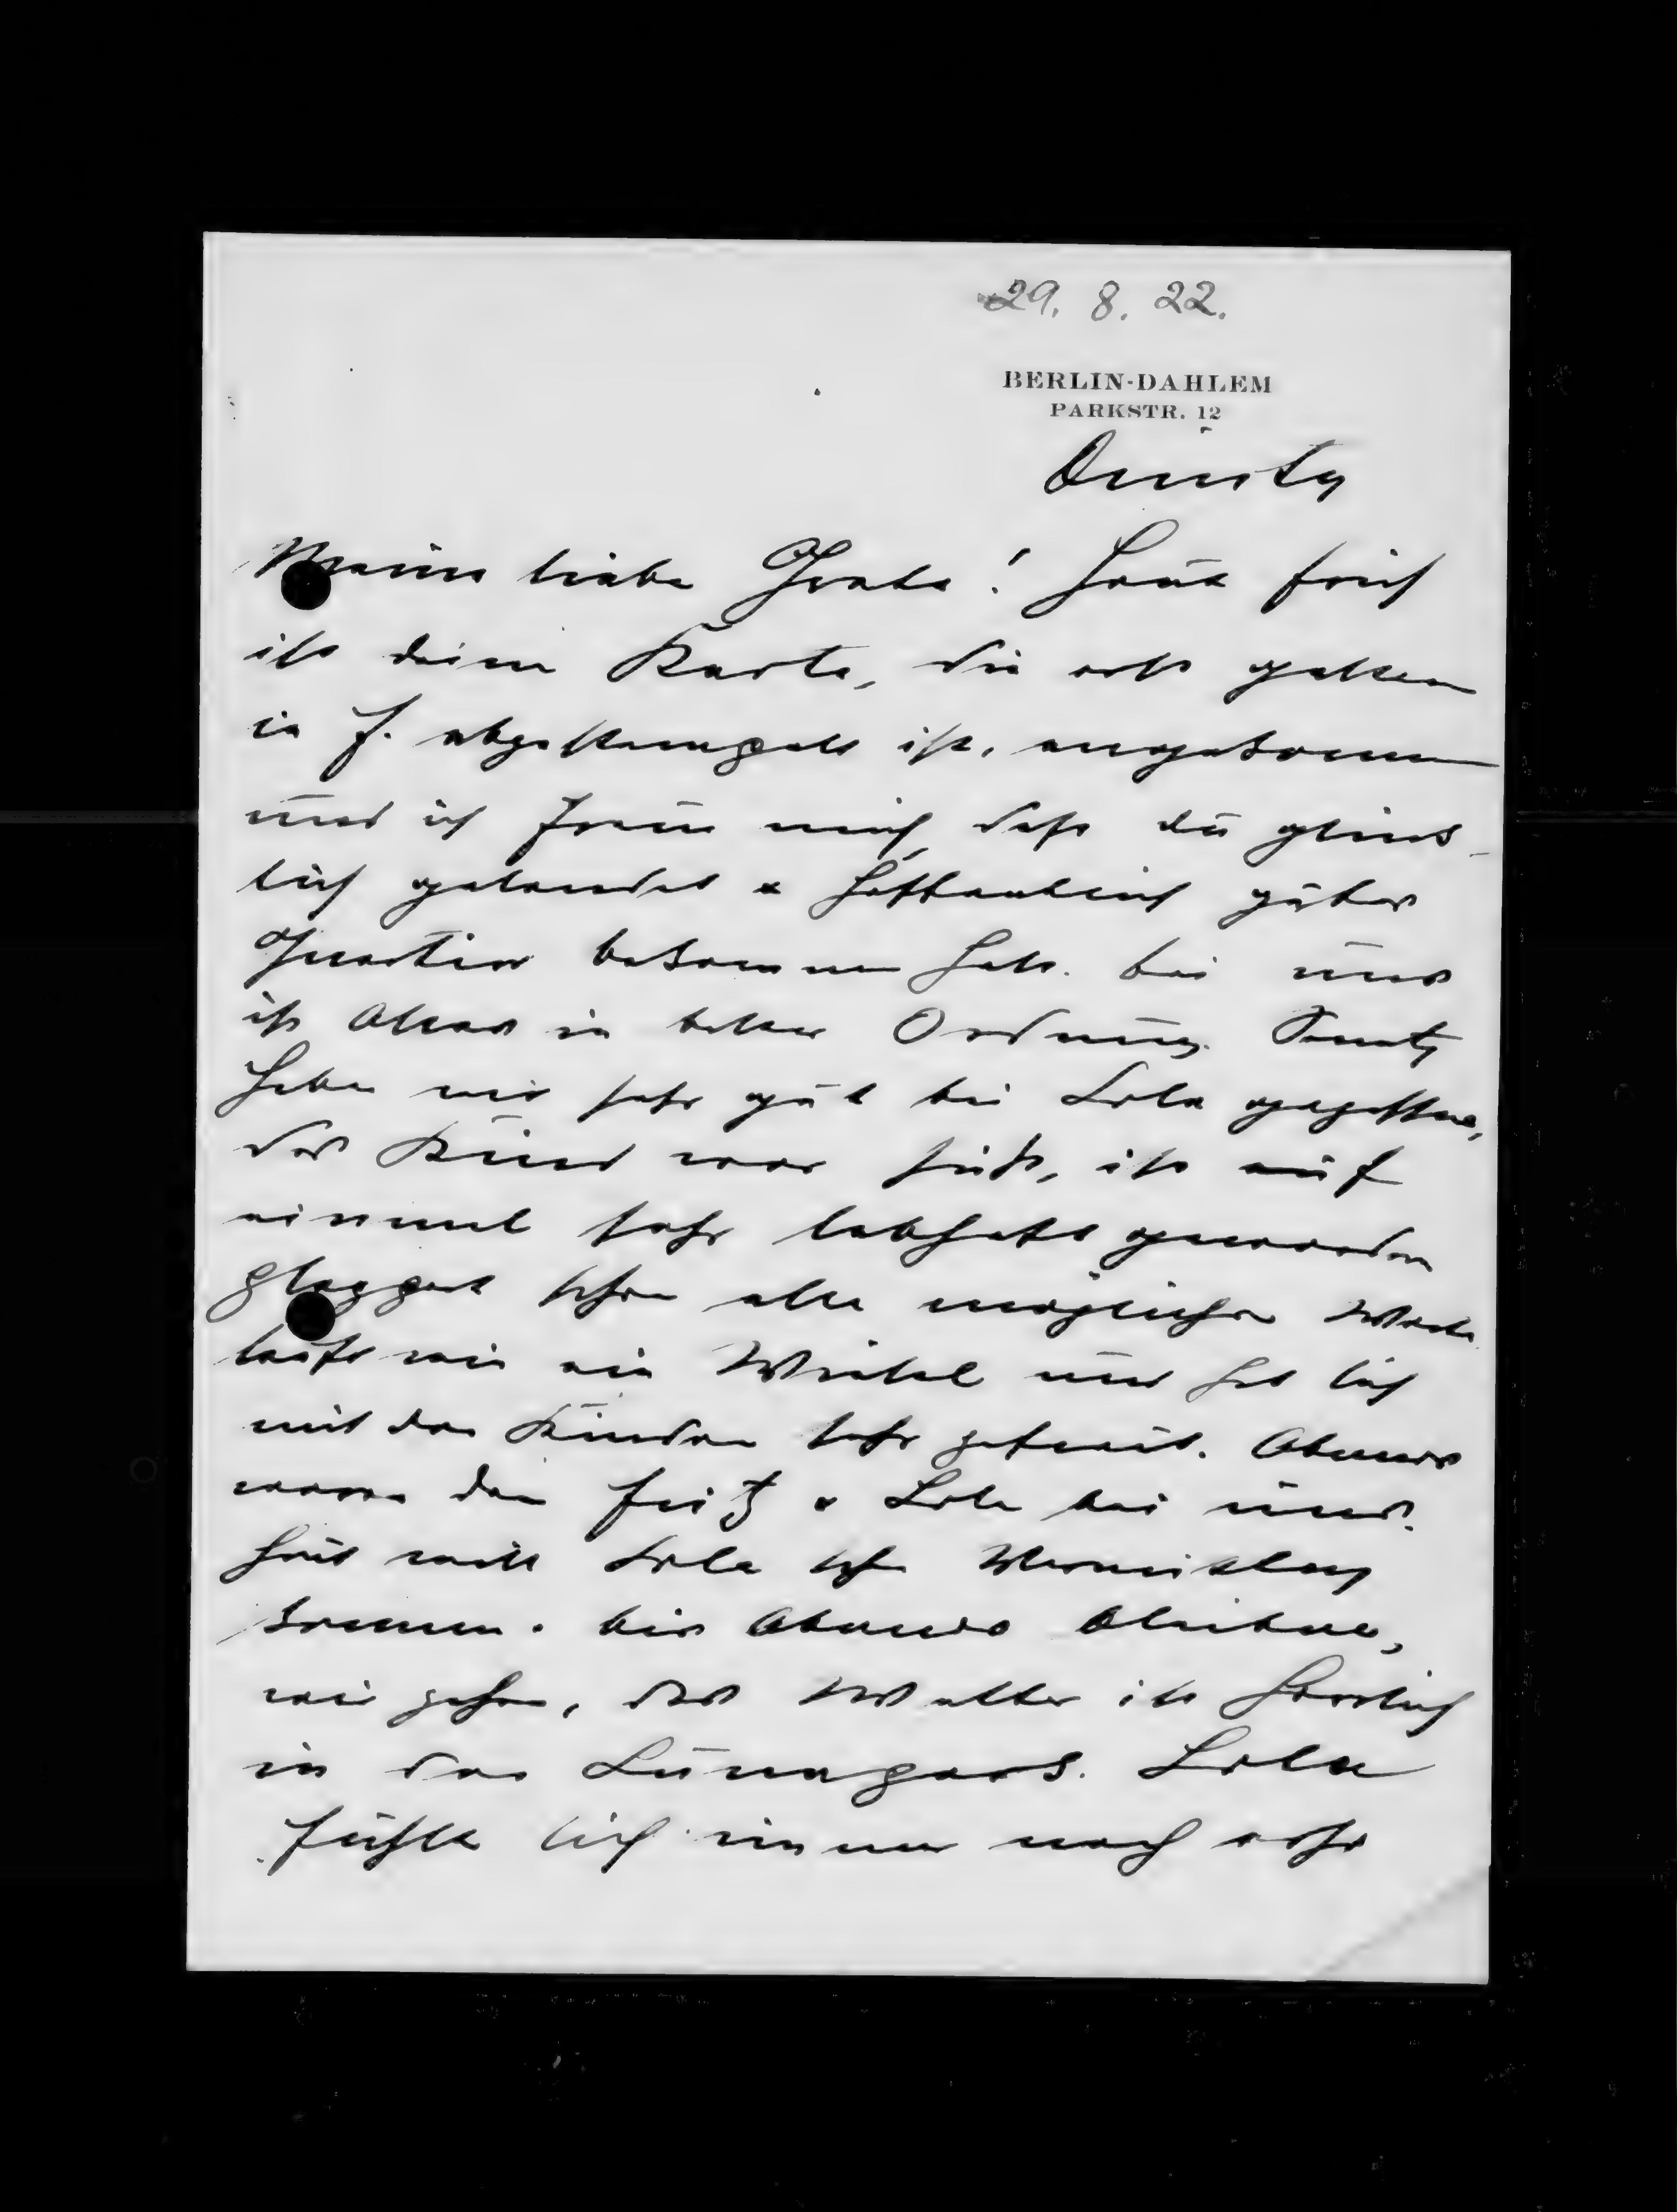 29. 8. 22.
BERLIN-DAHLEM
PARKSTR. 12
Dienstag
Meine liebe Grete! Heute früh
ist deine Karte, die erst gestern
in F. abgestempelt ist, angekommen
und ich freue mich, dass du glück-
lich gelandet & hoffentlich gutes
Quartier bekommen hast. bei uns
ist Alles in bester Ordnung. Sonntag
haben wir sehr gut bei Lola gegessen,
das Kind war süß, ist auf
einmal sehr lebhaft geworden
plappert schon alle möglichen Worte
läuft wie ein Wiesel und hat sich
mit den Kindern sehr gefreut. Abends
waren dann Fritz & Lola bei uns.
Heut will Lola schon Vormittag
kommen. bis Abends bleiben,
wir gehen, das Wetter ist herrlich
in den Lunapark. Lola
fühlt sich immer noch sehr